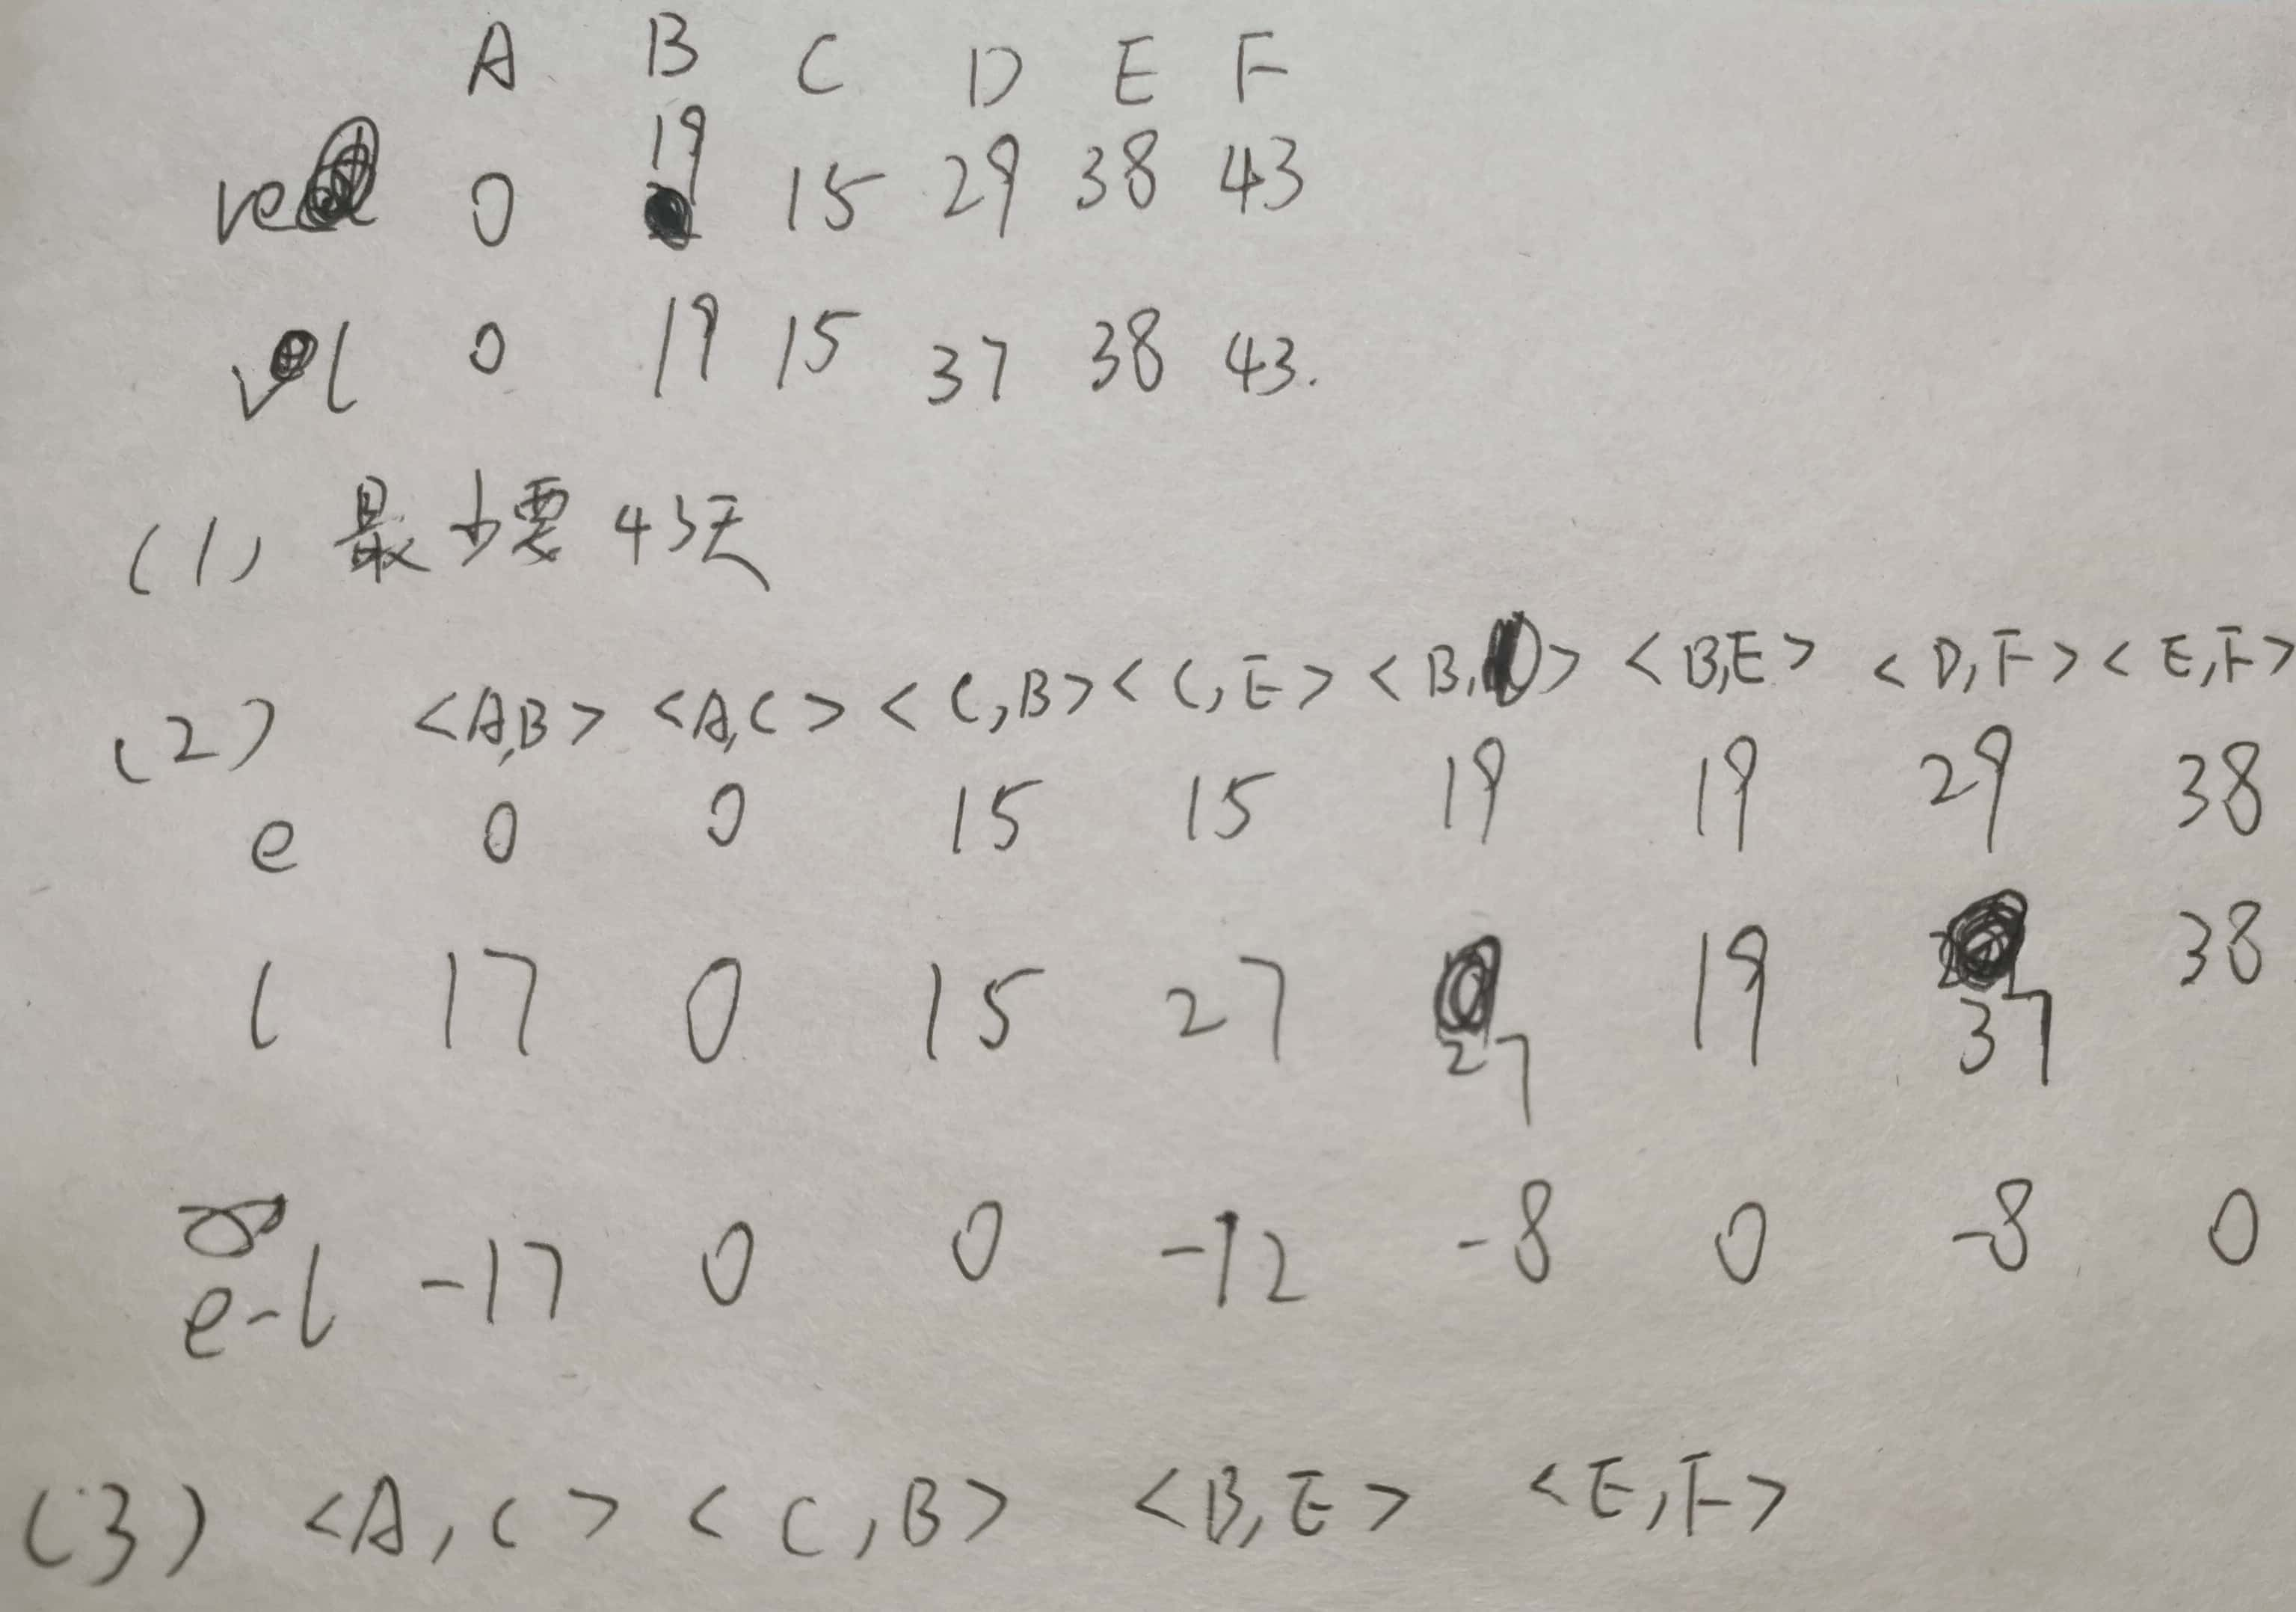 A B C D E F
ve 0 19 15 29 38 43
vl 0 19 15 37 38 43.
(1) 最少要 43天
(2) <A,B> <A,C> <C,B> <C,E> <B,D> <B,E> <D,F> <E,F>
e 0 0 15 15 19 19 29 38
l 17 0 15 27 27 19 37 38
e-l -17 0 0 -12 -8 0 -8 0
(3) <A,C> <C,B> <B,E> <E,F>